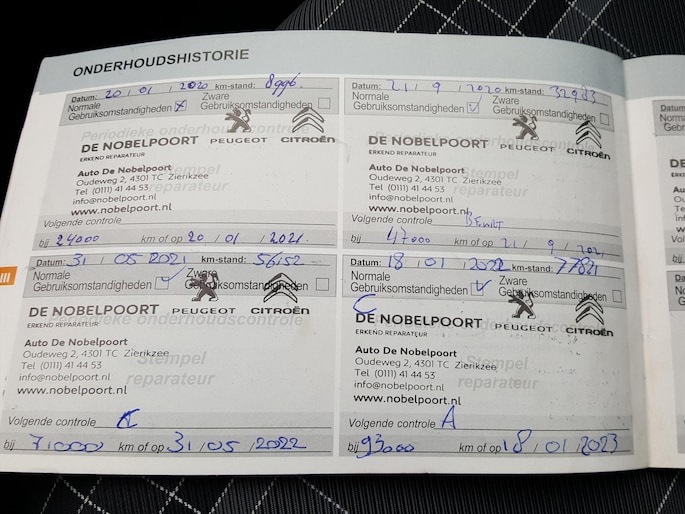 ONDERHOUDSHISTORIE
Datum: 20 / 01 / 2020 km-stand: 8996.
Normale Gebruiksomstandigheden Zware Gebruiksomstandigheden
Periodieke onderhoudscontrole
DE NOBELPOORT
ERKEND REPARATEUR
PEUGEOT CITROËN
Stempel reparateur
Auto De Nobelpoort
Oudeweg 2, 4301 TC Zierikzee
Tel (0111) 41 44 53
info@nobelpoort.nl
www.nobelpoort.nl
Volgende controle
bij 24000 km of op 20 / 01 / 2021.
Datum: 21 / 9 / 2020 km-stand: 32983
Normale Gebruiksomstandigheden Zware Gebruiksomstandigheden
Periodieke onderhoudscontrole
DE NOBELPOORT
ERKEND REPARATEUR
PEUGEOT CITROËN
Stempel reparateur
Auto De Nobelpoort
Oudeweg 2, 4301 TC Zierikzee
Tel (0111) 41 44 53
info@nobelpoort.nl
www.nobelpoort.nl
Volgende controle
bij 47000 km of op 21 / 9 / 2021
III
Datum: 31 / 05 / 2021 km-stand: 56152
Normale Gebruiksomstandigheden Zware Gebruiksomstandigheden
Periodieke onderhoudscontrole
DE NOBELPOORT
ERKEND REPARATEUR
PEUGEOT CITROËN
Stempel reparateur
Auto De Nobelpoort
Oudeweg 2, 4301 TC Zierikzee
Tel (0111) 41 44 53
info@nobelpoort.nl
www.nobelpoort.nl
Volgende controle
bij 71000 km of op 31 / 05 / 2022
Datum: 18 / 01 / 2022 km-stand: 77821
Normale Gebruiksomstandigheden Zware Gebruiksomstandigheden
C
Periodieke onderhoudscontrole
DE NOBELPOORT
ERKEND REPARATEUR
PEUGEOT CITROËN
Stempel reparateur
Auto De Nobelpoort
Oudeweg 2, 4301 TC Zierikzee
Tel (0111) 41 44 53
info@nobelpoort.nl
www.nobelpoort.nl
Volgende controle A
bij 93000 km of op 18 / 01 / 2023